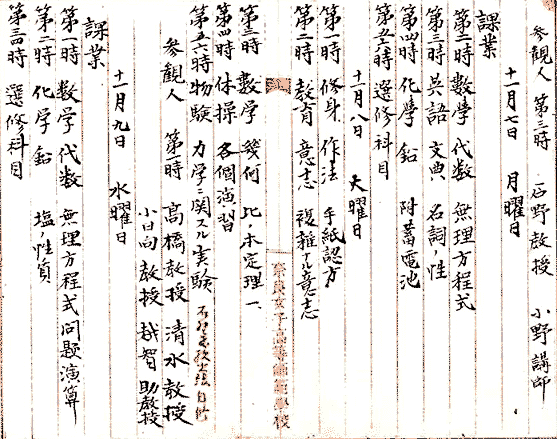 参観人 第三時 石野教授 小野講師
十一月七日 月曜日
課業
第一二時 数学 代数 無理方程式
第三時 英語 文典 名詞ノ性
第四時 化学 鉛 附蓄電池
第五六時 選修科目
十一月八日 火曜日
第一時 修身 作法 手紙認方
第二時 教育 意志 複雑ナル意志
奈良女子高等師範学校
第三時 数学 幾何 比ノ本定理一、
第四時 体操 各個演習
第五六時 物験 力学ニ関スル実験
参観人 第一時 高橋教授 清水教授
小日向教授 越智助教授
十一月九日 水曜日
課業
第一時 数学 代数 無理方程式問題演算
第二時 化学 鉛 塩ノ性質
第三四時 選修科目